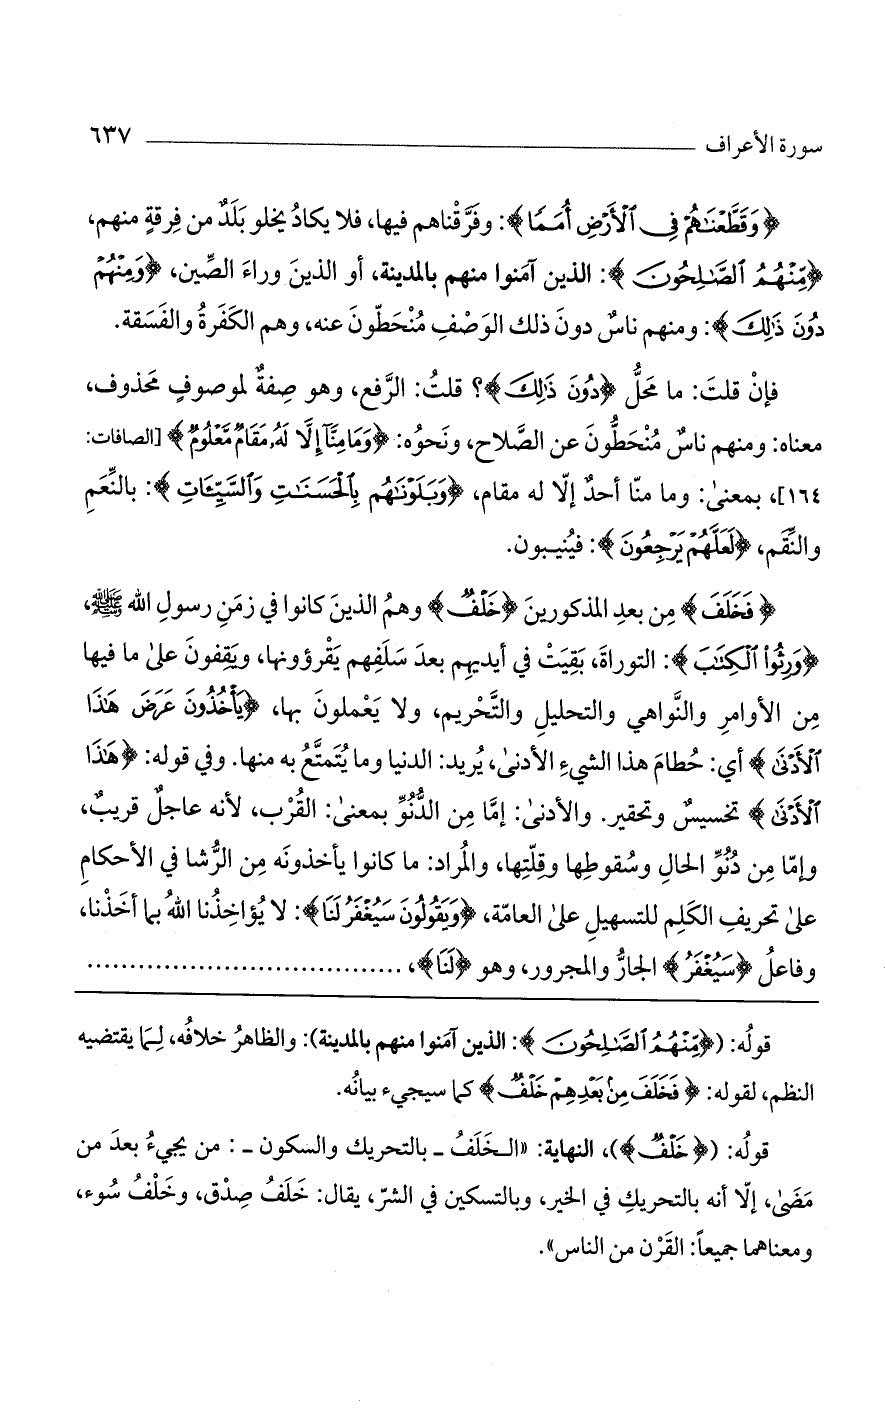 سورة الأعراف ٦٣٧
﴿وَقَطَّعْنَٰهُمْ فِى ٱلْأَرْضِ أُمَمًا﴾: وفَرَّقْناهم فيها، فلا يكادُ يخلو بَلَدٌ من فِرقةٍ منهم،
﴿مِّنْهُمُ ٱلصَّٰلِحُونَ﴾: الذين آمَنوا منهم بالمدينة، أو الذينَ وراءَ الصِّين، ﴿وَمِنْهُمْ
دُونَ ذَٰلِكَ﴾: ومنهم ناسٌ دونَ ذلك الوَصْفِ مُنْحَطّونَ عنه، وهم الكَفَرةُ والفَسَقة.
فإنْ قلتَ: ما محَلُّ ﴿دُونَ ذَٰلِكَ﴾؟ قلتُ: الرَّفع، وهو صِفةٌ لموصوفٍ محَذوف،
معناه: ومنهم ناسٌ مُنْحَطُّونَ عن الصَّلاح، ونَحوُه: ﴿وَمَا مِنَّآ إِلَّا لَهُۥ مَقَامٌ مَّعْلُومٌ﴾ [الصافات:
١٦٤]، بمعنىٰ: وما منّا أحدٌ إلّا له مقام، ﴿وَبَلَوْنَٰهُم بِٱلْحَسَنَٰتِ وَٱلسَّيِّـَٔاتِ﴾: بالنِّعَمِ
والنِّقَم، ﴿لَعَلَّهُمْ يَرْجِعُونَ﴾: فيُنيبون.
﴿فَخَلَفَ﴾ مِن بعدِ المذكورينَ ﴿خَلْفٌ﴾ وهمُ الذينَ كانوا في زمَنِ رسولِ الله ﷺ،
﴿وَرِثُوا۟ ٱلْكِتَٰبَ﴾: التوراةَ، بَقِيَتْ في أيديهِم بعدَ سَلَفِهم يَقْرؤونها، ويَقِفونَ علىٰ ما فيها
مِن الأوامرِ والنَّواهي والتحليلِ والتَّحْريم، ولا يَعْملونَ بها، ﴿يَأْخُذُونَ عَرَضَ هَٰذَا
ٱلْأَدْنَىٰ﴾ أي: حُطامَ هذا الشيءِ الأدنىٰ، يُريد: الدنيا وما يُتَمتَّعُ به منها. وفي قوله: ﴿هَٰذَا
ٱلْأَدْنَىٰ﴾ تخسيسٌ وتحقير. والأدنىٰ: إمَّا مِن الدُّنُوِّ بمعنىٰ: القُرْب، لأنه عاجلٌ قريبٌ،
وإمّا مِن دُنُوِّ الحالِ وسُقوطِها وقِلّتِها، والمُراد: ما كانوا يأخذونَه مِن الرُّشا في الأحكامِ
علىٰ تحريفِ الكَلِم للتسهيلِ علىٰ العامّة، ﴿وَيَقُولُونَ سَيُغْفَرُ لَنَا﴾: لا يُؤاخِذُنا اللهُ بما أخَذْنا،
وفاعلُ ﴿سَيُغْفَرُ﴾ الجارُّ والمجرور، وهو ﴿لَنَا﴾، ....................................
قولُه: (﴿مِّنْهُمُ ٱلصَّٰلِحُونَ﴾: الذين آمَنوا منهم بالمدينة): والظاهرُ خلافُه، لِـمَا يقتضيه
النظم، لقوله: ﴿فَخَلَفَ مِنۢ بَعْدِهِمْ خَلْفٌ﴾ كما سيجيء بيانُه.
قولُه: (﴿خَلْفٌ﴾)، النهاية: «الـخَلَفُ ـ بالتحريك والسكون ـ : من يجيءُ بعدَ من
مَضَىٰ، إلّا أنه بالتحريكِ في الخير، وبالتسكين في الشرّ، يقال: خَلَفُ صِدْق، وخَلْفُ سُوء،
ومعناهما جميعاً: القَرْن من الناس».